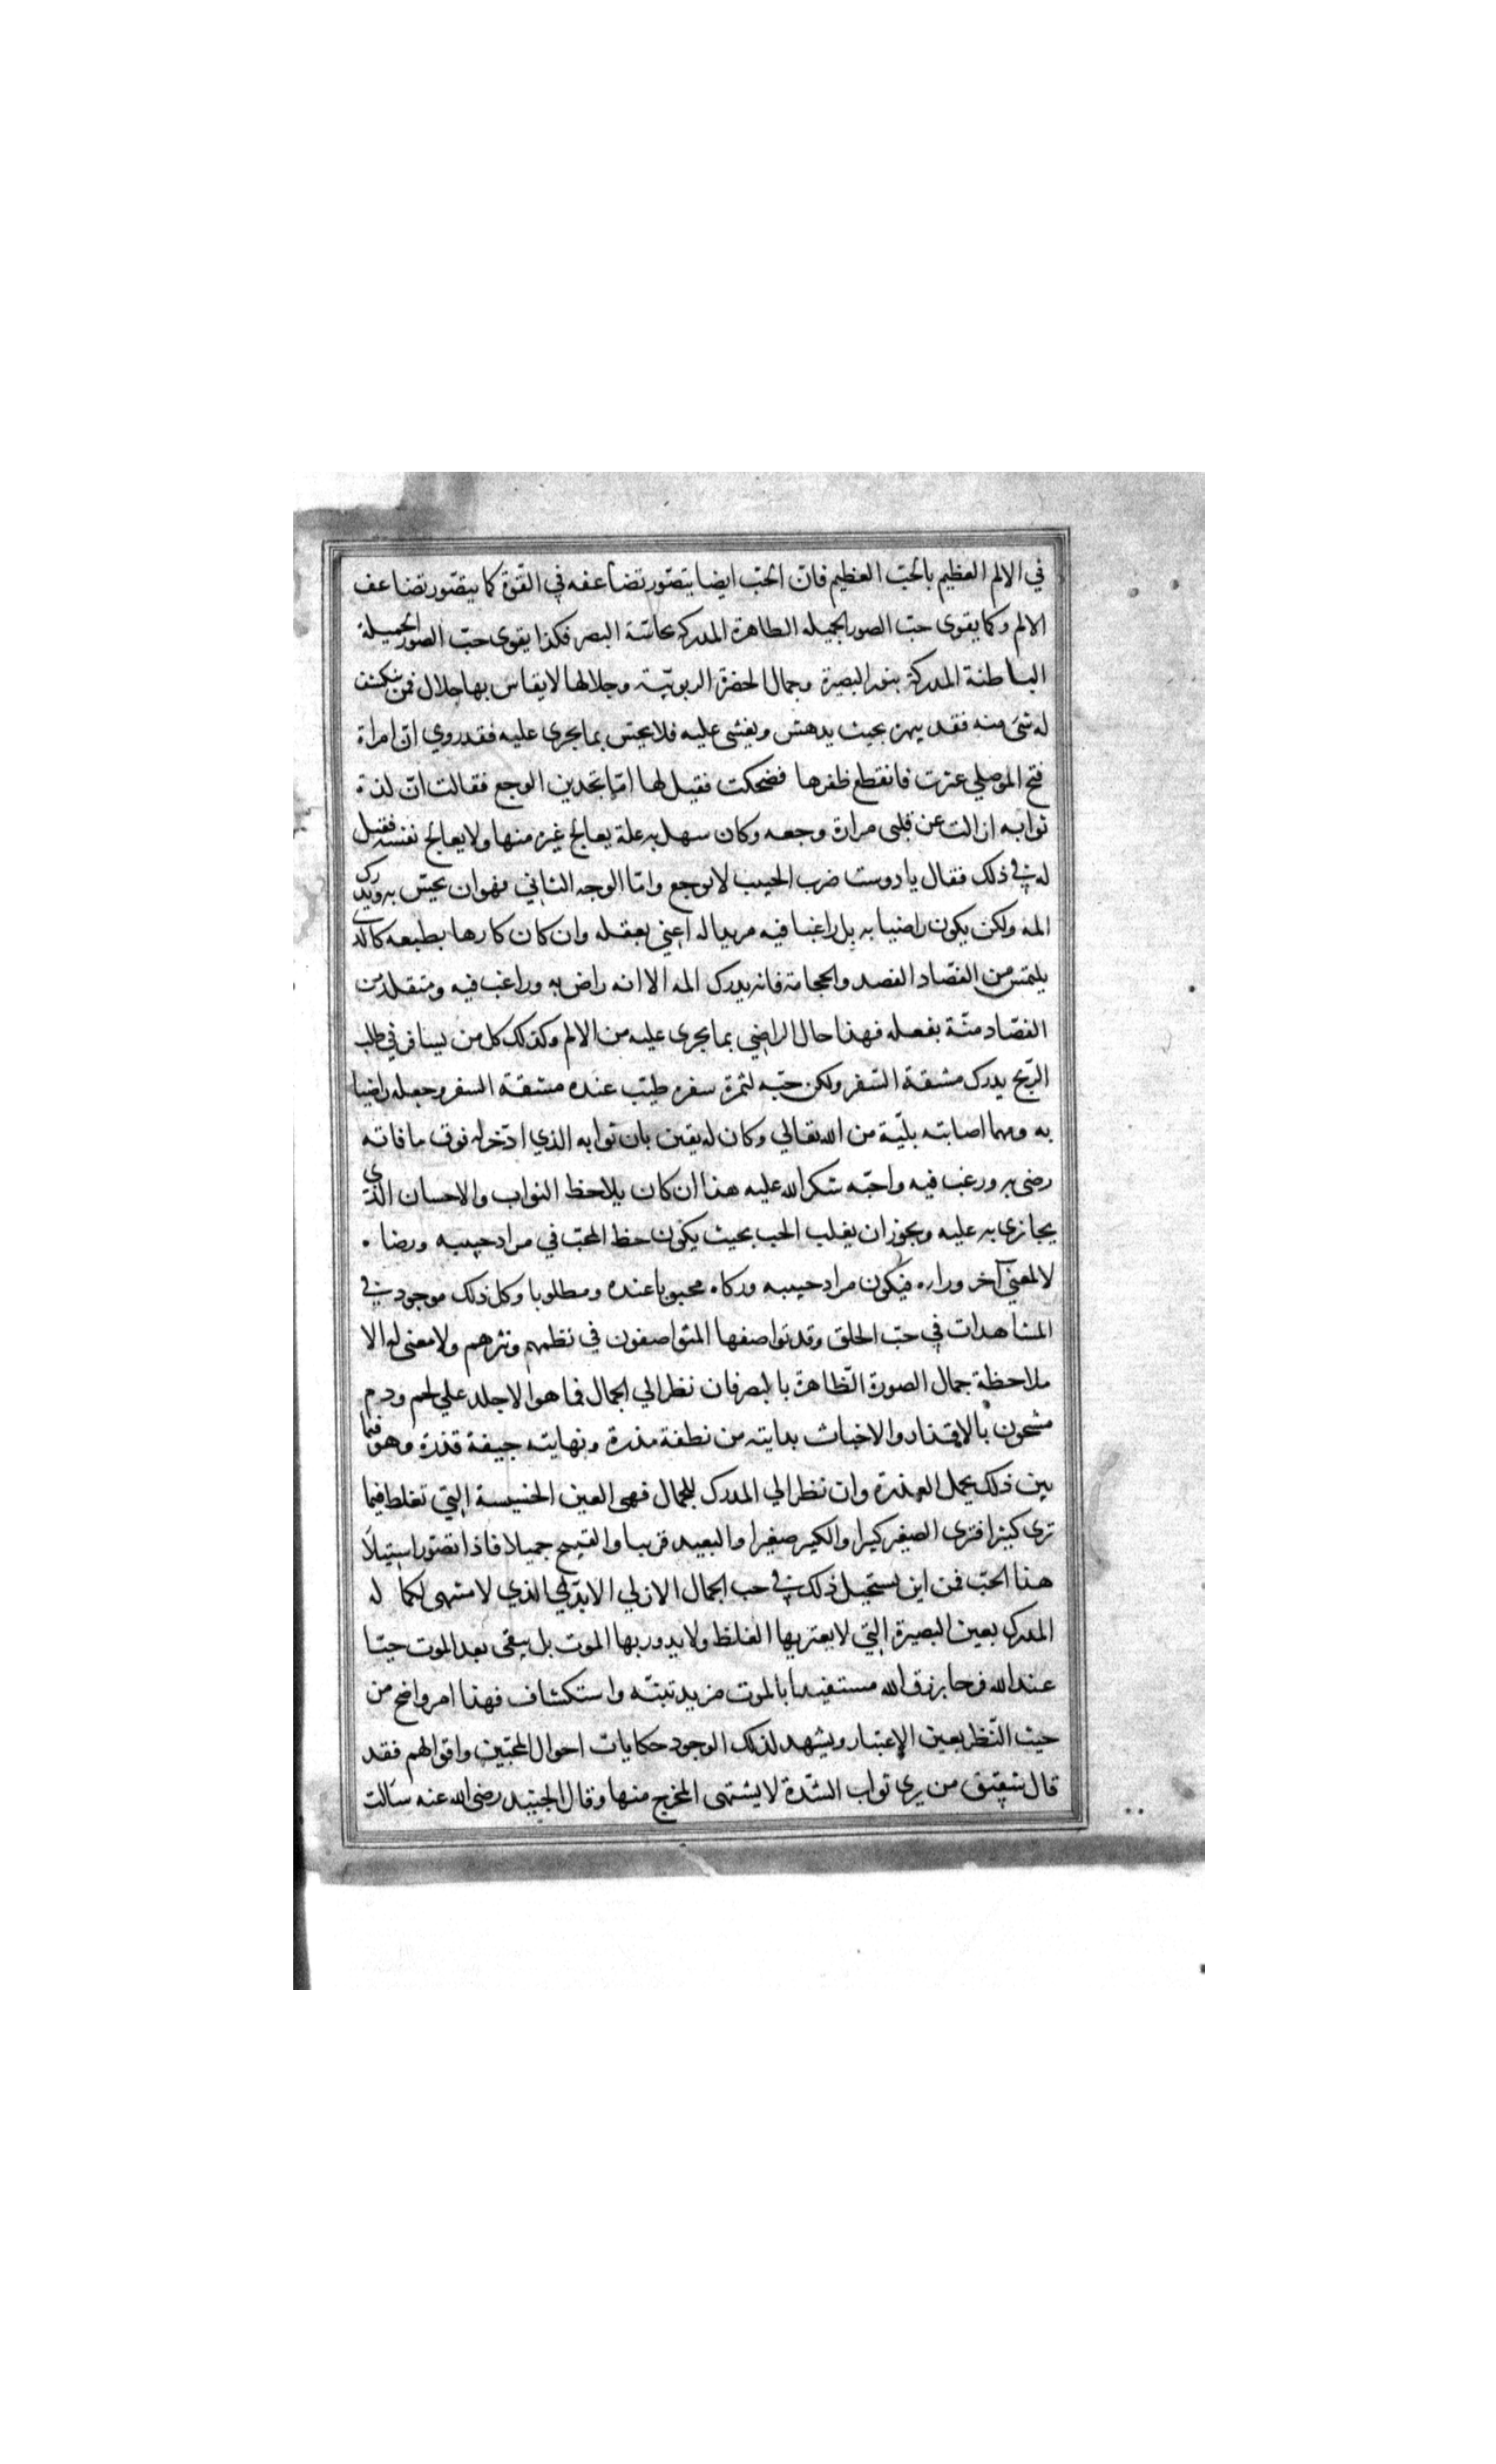 في الالم العظيم بالحبّ العظيم فانّ الحبّ ايضا يتصّور تضاعفه في القّوة كما يتصّور تضاعف
الالم وكما يقوى حبّ الصور الجميله الظاهرة المدركه بحاسّة البصر فكذا يقوى حبّ الصور الجميلة
الباطنة المدركة بنور البصيرة وجمال الحضرة الربوبيّة وجلالها لا يقاس بها جلال فمن ينكشف
له شئ منه فقد يبهره بحيث يدهش ويغشى عليه فلا يحسّ بما يجرى عليه فقد روي انّ امراة
فتح الموصلي عثرت فانقطع ظفرها فضحكت فقيل لها امّا تجدين الوجع فقالت انّ لذة
ثوابه ازالت عن قلبى مرارة وجعه وكان سهل به علة يعالج غيره منها ولا يعالج نفسه فقيل
له في ذلك فقال يا دوست ضرب الحبيب لا يوجع وامّا الوجه الثاني فهو ان يحسّ به ويدرك
المه ولكن يكون راضيا به بل راغبا فيه مريدا له اعني بعقله وان كان كارها بطبعه كالذي
يلتمس من الفصّاد الفصد والحجامة فانه يدرك المه الا انه راض به وراغب فيه ومتقلد من
الفصّاد منّة بفعله فهذا حال الراضي بما يجرى عليه من الالم وكذلك كل من يسافر في طلب
الرّبح يدرك مشقة السّفر ولكن حبّه لثمرة سفره طيّب عنده مشقة السفر وجعله راضيا
به ومهما اصابته بليّة من الله تعالي وكان له يقين بان ثوابه الذي ادّخر له فوق ما فاته
رضى به ورغب فيه واحبّه وشكر الله عليه هذا ان كان يلاحظ الثواب والاحسان الذي
يجازى به عليه ويجوز ان يغلب الحب بحيث يكون حظ المحبّ في مراد حبيبه ورضاه
لا لمعنى آخر وراءه فيكون مراد حبيبه ورضاه محبوبا عنده ومطلوبا وكل ذلك موجود في
المشاهدات في حبّ الخلق وقد تواصفها المتواصفون في نظمهم ونثرهم ولا معنى له الا
ملاحظة جمال الصورة الظّاهرة بالبصر فان نظر الي الجمال فما هو الا جلد علي لحم ودم
مشحون بالاقذار والاخباث بدايته من نطفة مذرة ونهايته جيفة قذرة وهو فيما
بين ذلك يحمل العذرة وان نظر الي المدرك للجمال فهي العين الخسيسة التي تغلط فيما
ترى كثيرا فترى الصغير كبيرا والكبير صغيرا والبعيد قريبا والقبيح جميلا فاذا تصّور استيلاَ
هذا الحبّ فمن اين يستحيل ذلك في حب الجمال الازلي الابدّي الذي لا منتهى لكما له
المدرك بعين البصيرة التي لا يعتريها الغلط ولا يدور بها الموت بل يبقى بعد الموت حيّا
عند الله فرحا برزق الله مستفيدا بالموت مزيد تنبّه واستكشاف فهذا امر واضح من
حيث النّظر بعين الإعتبار ويشهد لذلك الوجود حكايات احوال المحبّين واقوالهم فقد
قال شقيق من يرى ثواب الشدّة لا يشتهى المخرج منها وقال الجنيد رضى الله عنه سالت